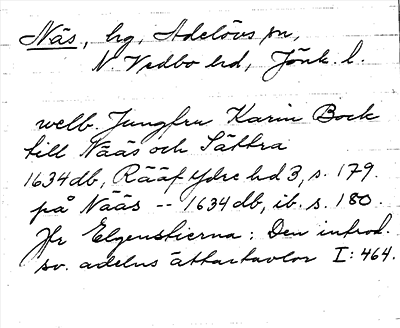 Näs, hg, Adelövs sn,
N Vedbo hd, Jönk. l.
welb. Jungfru Karin Bock
till Nääs och Sättra
1634 db, Rääf Ydre hd 3, s. 179.
på Nääs -- 1634 db, ib. s. 180.
Jfr Elgenstierna: Den introd.
sv. adelns ättartavlor I: 464.